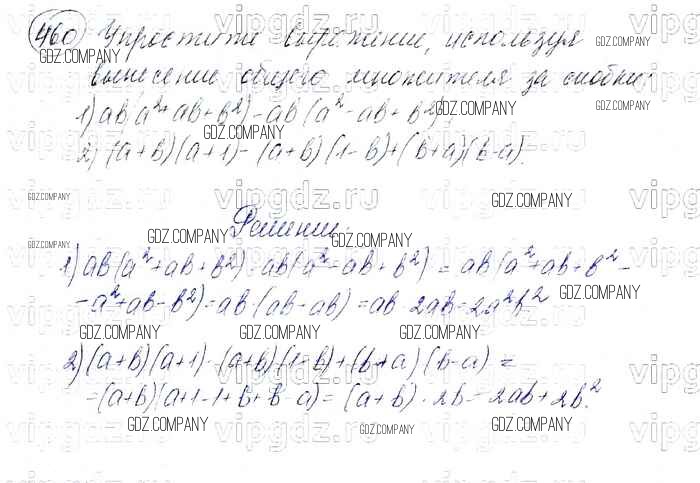 460 Упростите выражение, используя
вынесение общего множителя за скобки:
1) ab(a²+ab+b²)-ab(a²-ab+b²);
2) (a+b)(a+1)-(a+b)(1-b)+(b+a)(b-a).
Решение.
1) ab(a²+ab+b²)-ab(a²-ab+b²) = ab(a²+ab+b²-
-a²+ab-b²)=ab·(ab-ab)=ab·2ab=2a²b²
2) (a+b)(a+1)-(a+b)(1-b)+(b+a)(b-a)=
=(a+b)(a+1-1+b+b-a)=(a+b)·2b=2ab+2b².
GDZ.COMPANY
vipgdz.ru